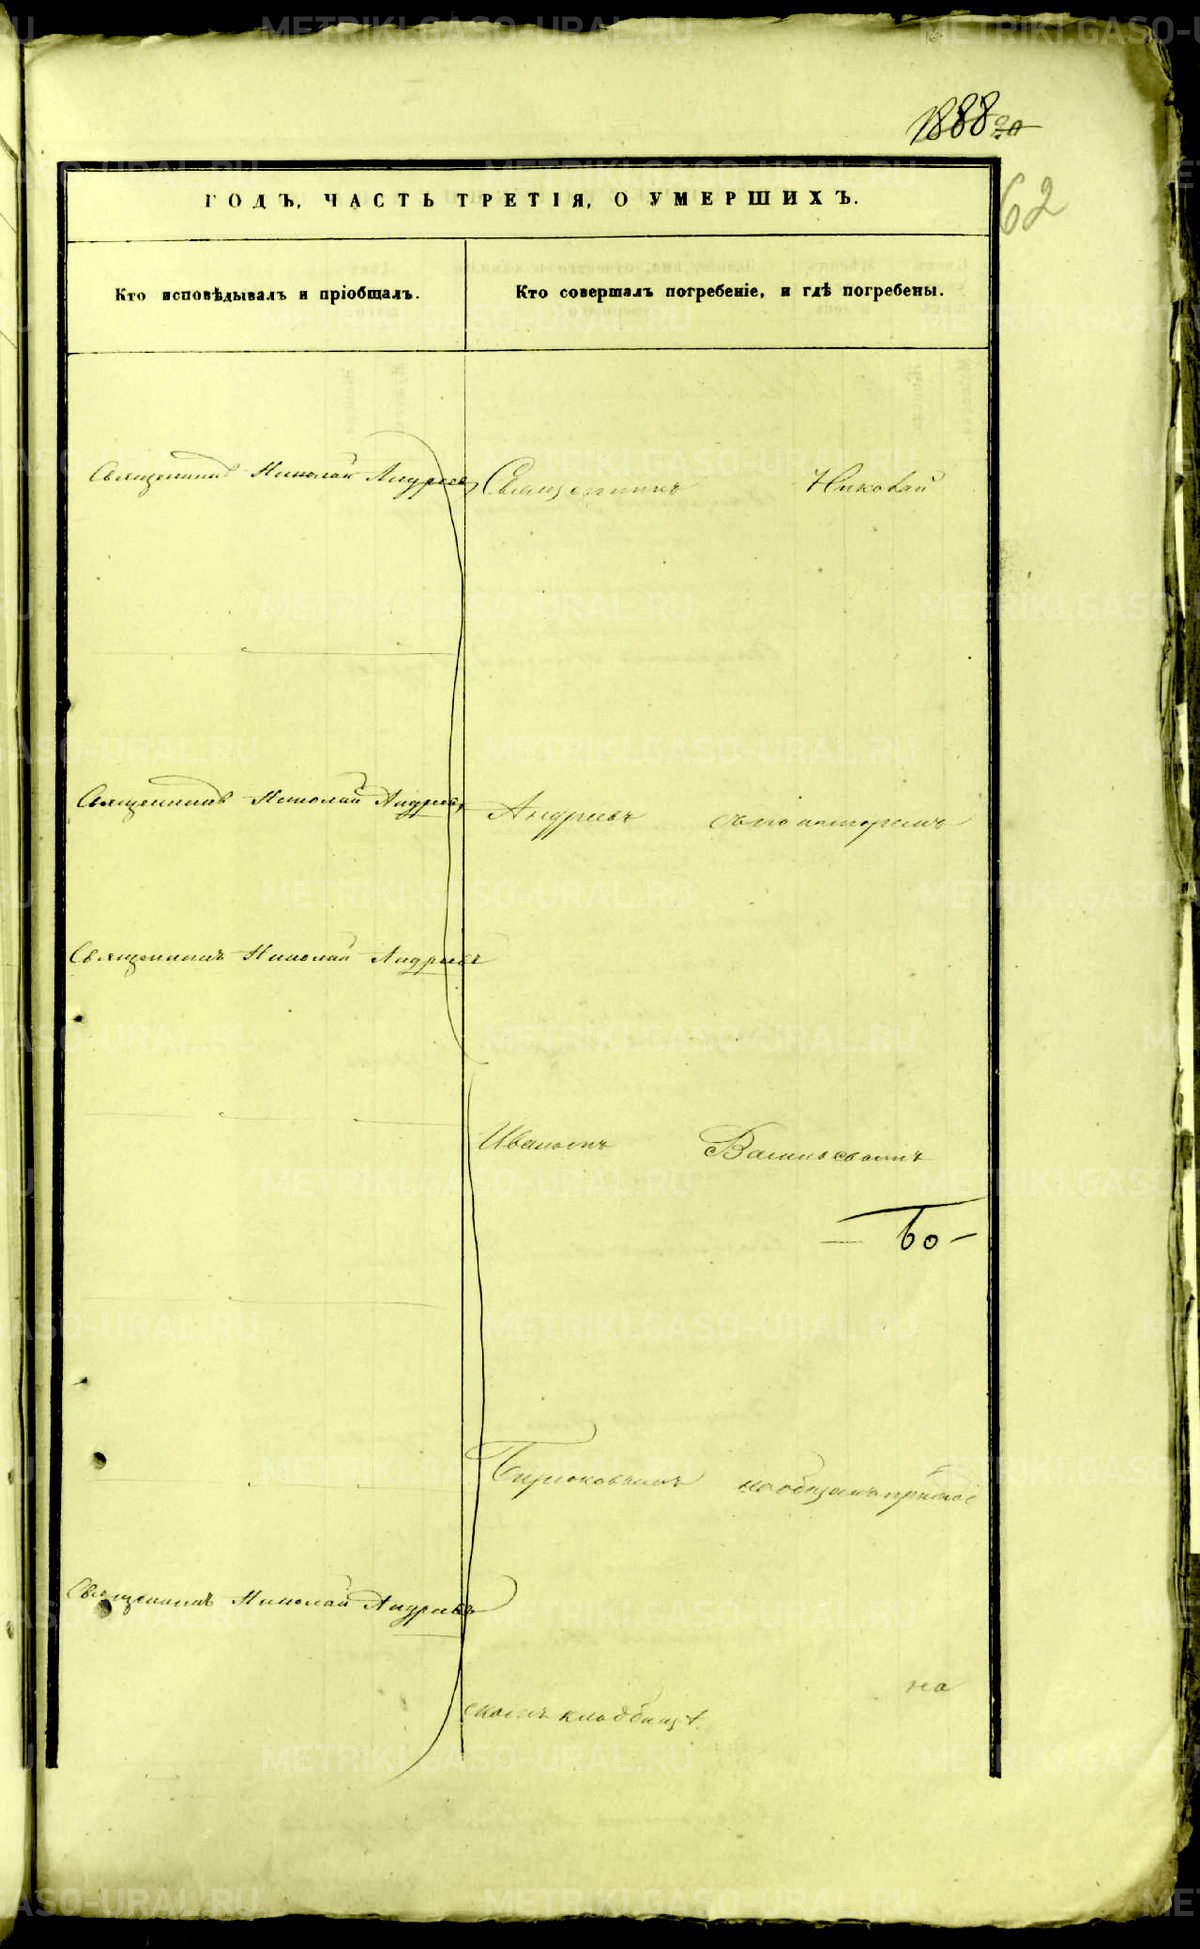 1888
62
ГОДЪ, ЧАСТЬ ТРЕТІЯ, О УМЕРШИХЪ.
Кто исповѣдывалъ и пріобщалъ.
Кто совершалъ погребеніе, и гдѣ погребены.
Священникъ Николай Андреевъ
Священникъ Николай
Священникъ Николай Андреевъ
Андреевъ съ пономаремъ
Священникъ Николай Андреевъ
Иваномъ Васильевымъ
Бирюковымъ на общемъ приход
Священникъ Николай Андреевъ
скомъ кладбищѣ.
на
METRIKI.GASO-URAL.RU